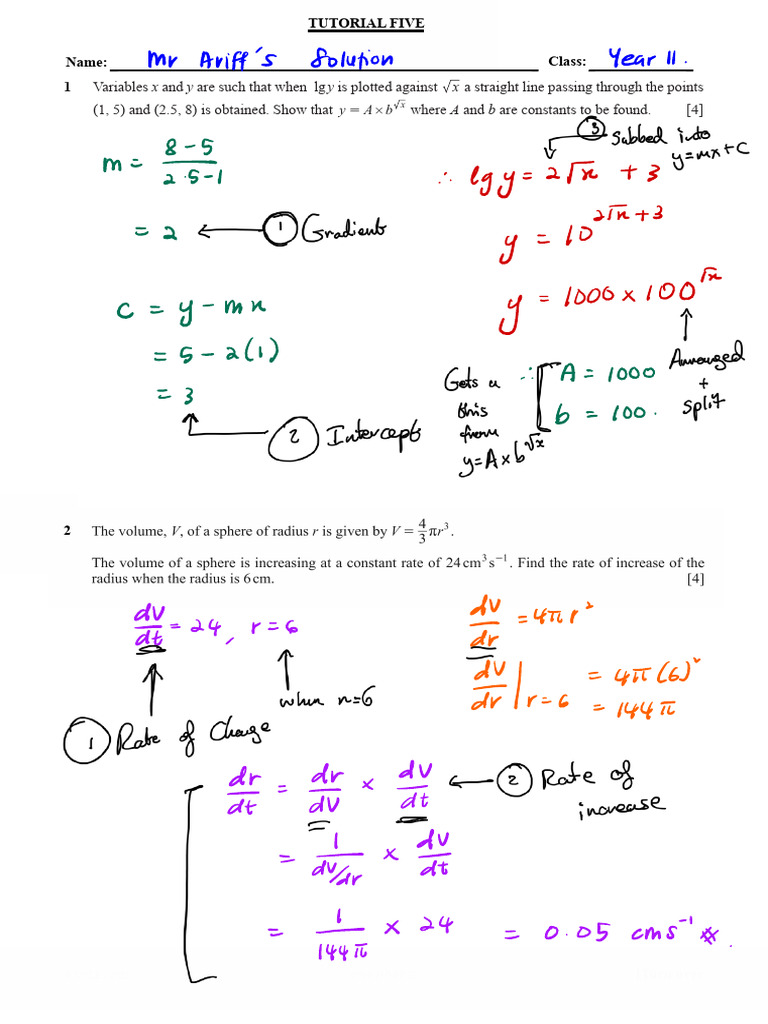 TUTORIAL FIVE
Name: Mr Ariff's Solution Class: Year 11.
1 Variables x and y are such that when lg y is plotted against √x a straight line passing through the points
(1, 5) and (2.5, 8) is obtained. Show that y = A × b^√x where A and b are constants to be found. [4]
m = (8 - 5)/(2.5 - 1)
= 2 ← ① Gradient
c = y - mx
= 5 - 2(1)
= 3
② Intercepts
③ Subbed into
y=mx+c
∴ lg y = 2√x + 3
y = 10^(2√x + 3)
y = 1000 × 100^√x
Arranged
+
split
Gets
this
from
y=A×b^√x
∴ A = 1000
b = 100.
2 The volume, V, of a sphere of radius r is given by V = 4/3 πr³.
The volume of a sphere is increasing at a constant rate of 24 cm³ s⁻¹. Find the rate of increase of the
radius when the radius is 6 cm. [4]
dV/dt = 24, r = 6
when r=6
① Rate of Change
dV/dr = 4πr²
dV/dr | r = 6 = 4π(6)²
= 144π
dr/dt = dr/dV × dV/dt ← ② Rate of
increase
= 1/(dV/dr) × dV/dt
= 1/144π × 24 = 0.05 cms⁻¹ #.